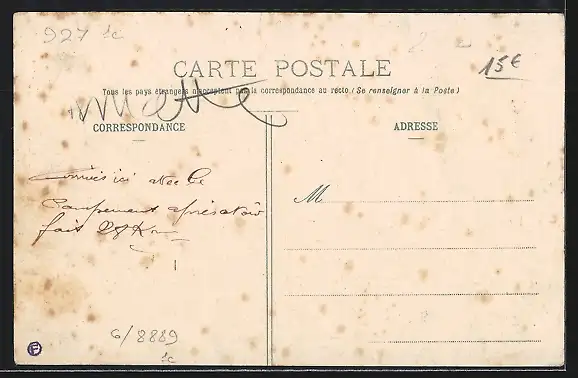 927 1c
CARTE POSTALE
15€
Tous les pays étrangers n'acceptent pas la correspondance au recto (Se renseigner à la Poste)
CORRESPONDANCE
ADRESSE
ici avec le
Campement après avoir
fait
M
6/8889
1c
F